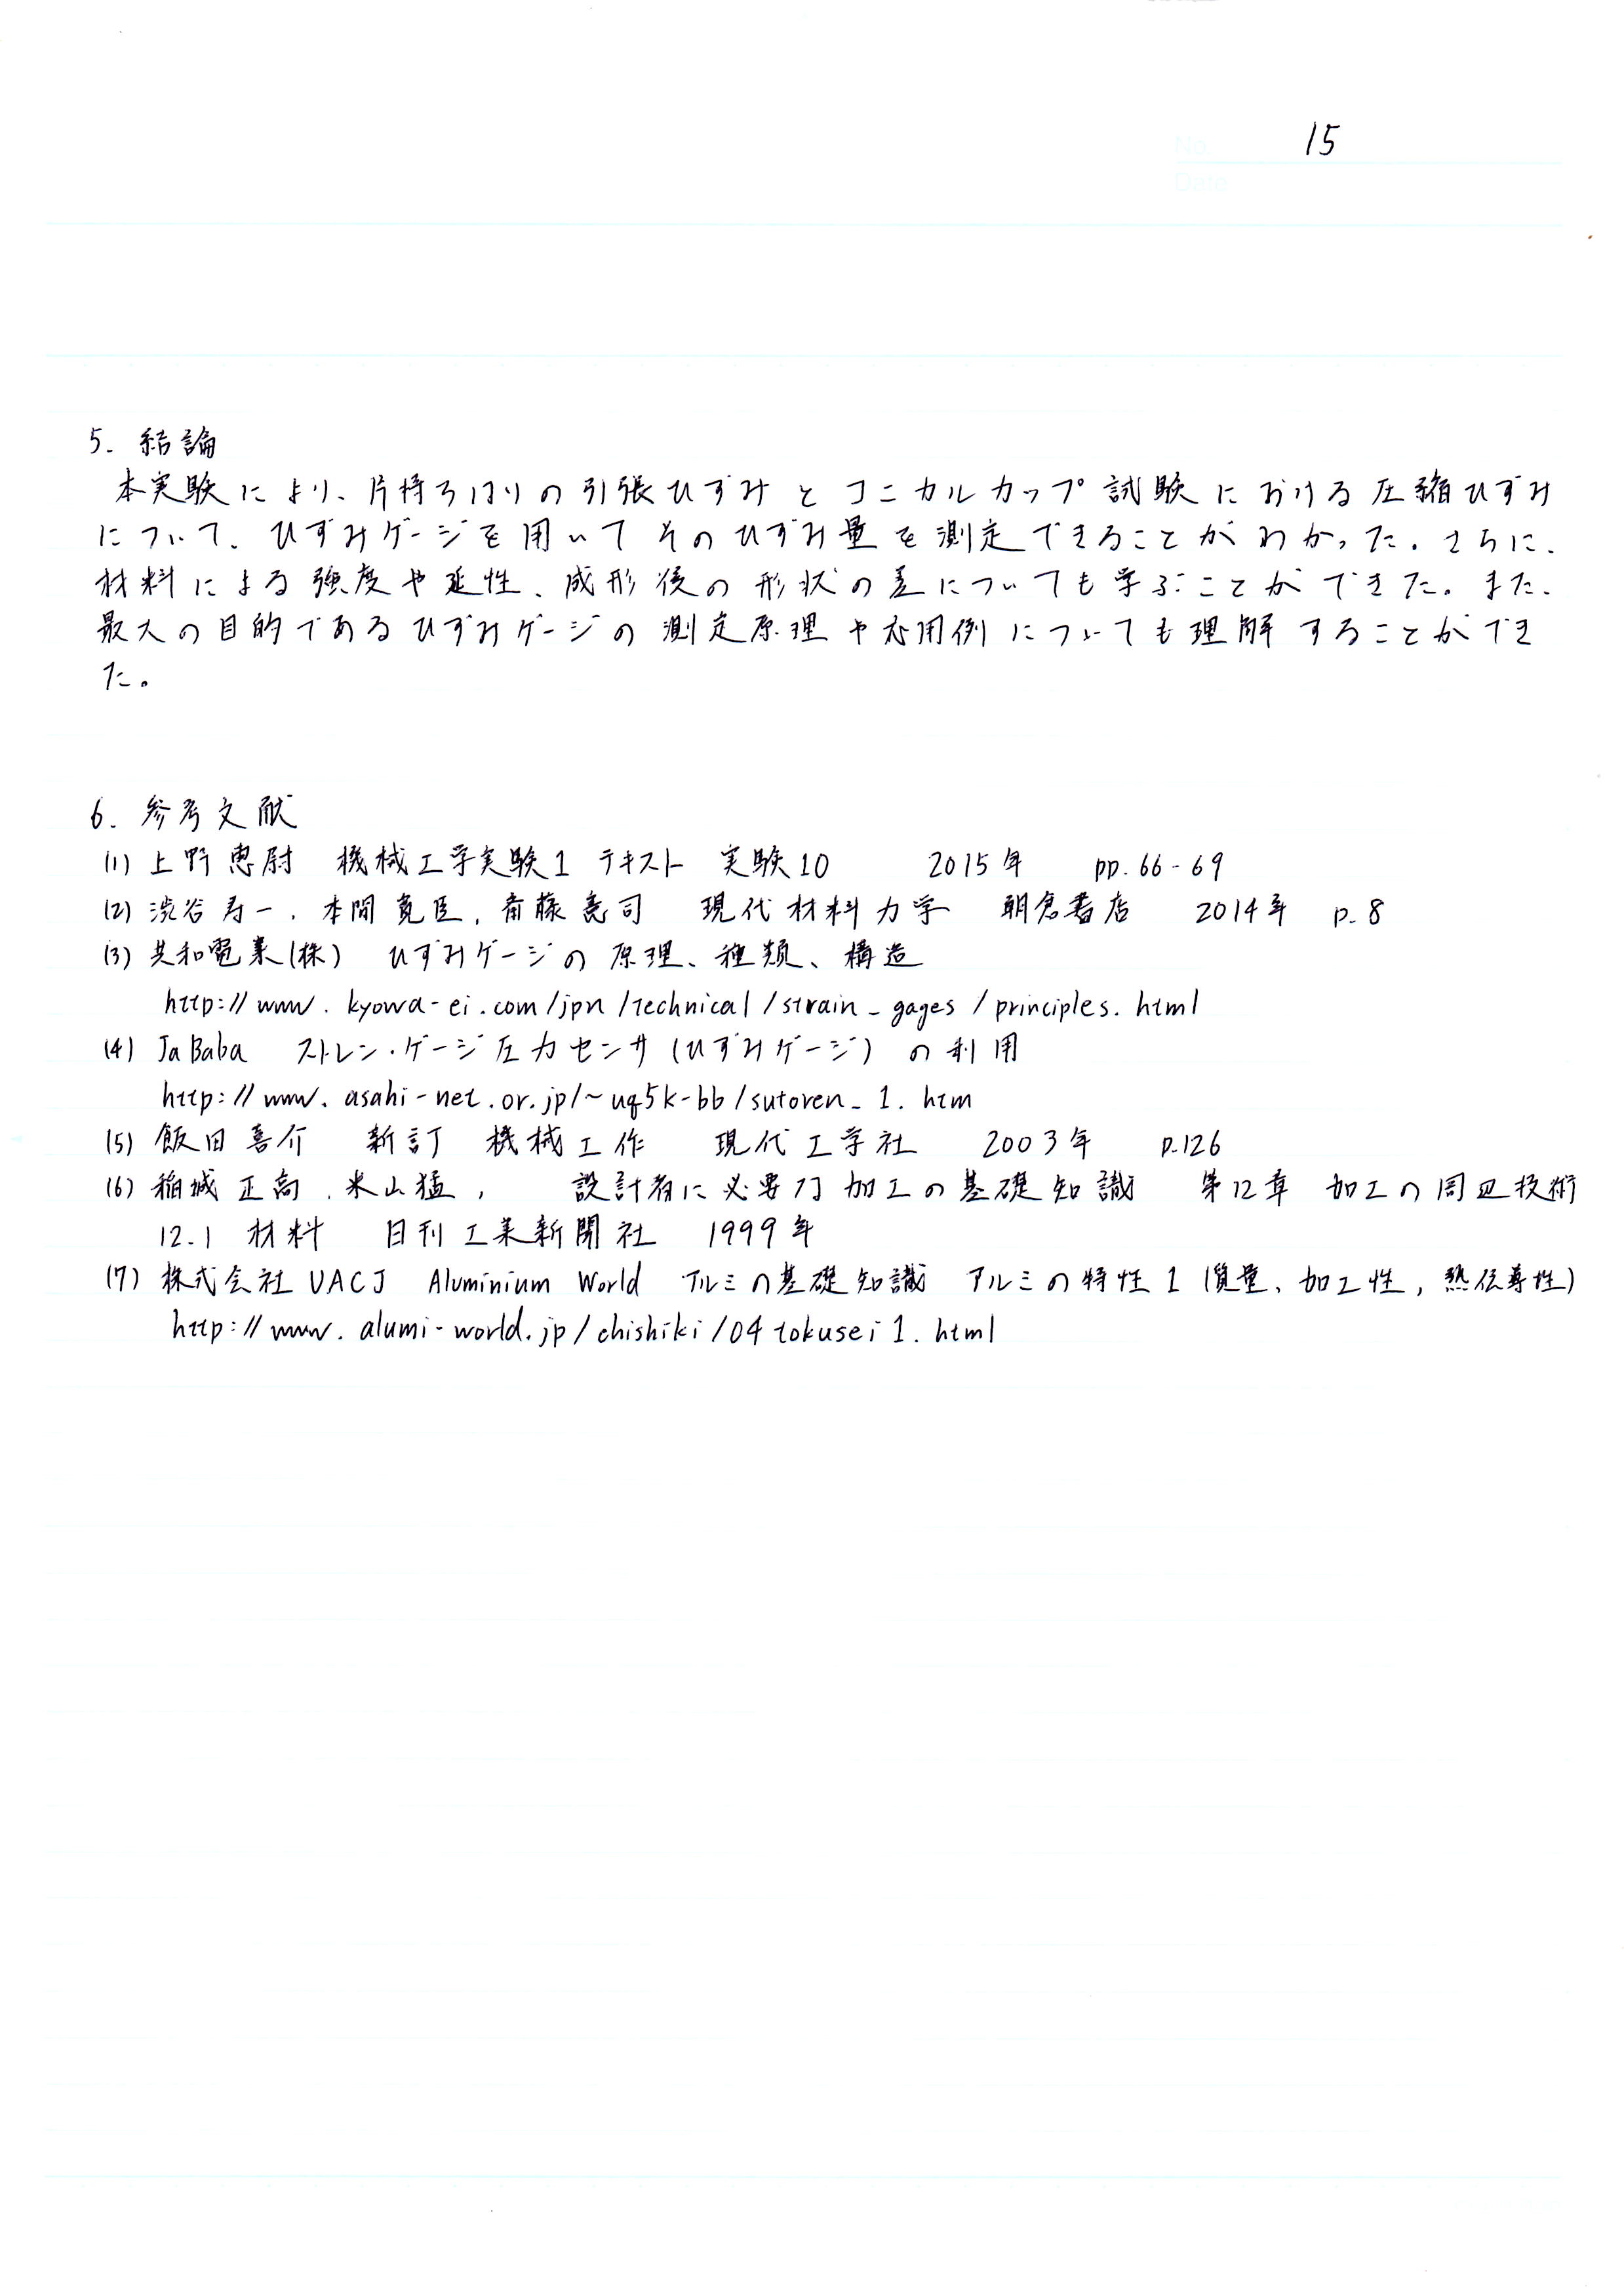 No. 15
Date
5. 結論
本実験により、片持ちはりの引張ひずみとコニカルカップ試験における圧縮ひずみ
について、ひずみゲージを用いてそのひずみ量を測定できることがわかった。さらに、
材料による強度や延性、成形後の形状の差についても学ぶことができた。また、
最大の目的であるひずみゲージの測定原理や応用例についても理解することができ
た。
6. 参考文献
(1) 上野恵尉 機械工学実験1 テキスト 実験10 2015年 pp.66-69
(2) 渋谷寿一, 本間寛臣, 斎藤憲司 現代材料力学 朝倉書店 2014年 p.8
(3) 共和電業(株) ひずみゲージの原理、種類、構造
http://www.kyowa-ei.com/jpn/technical/strain_gages/principles.html
(4) JaBaba ストレン・ゲージ圧力センサ(ひずみゲージ)の利用
http://www.asahi-net.or.jp/~uq5k-bb/sutoren_1.htm
(5) 飯田喜介 新訂 機械工作 現代工学社 2003年 p.126
(6) 稲城正高, 米山猛, 設計者に必要な加工の基礎知識 第12章 加工の周辺技術
12.1 材料 日刊工業新聞社 1999年
(7) 株式会社UACJ Aluminium World アルミの基礎知識 アルミの特性1(質量、加工性, 熱伝導性)
http://www.alumi-world.jp/chishiki/04tokusei1.html